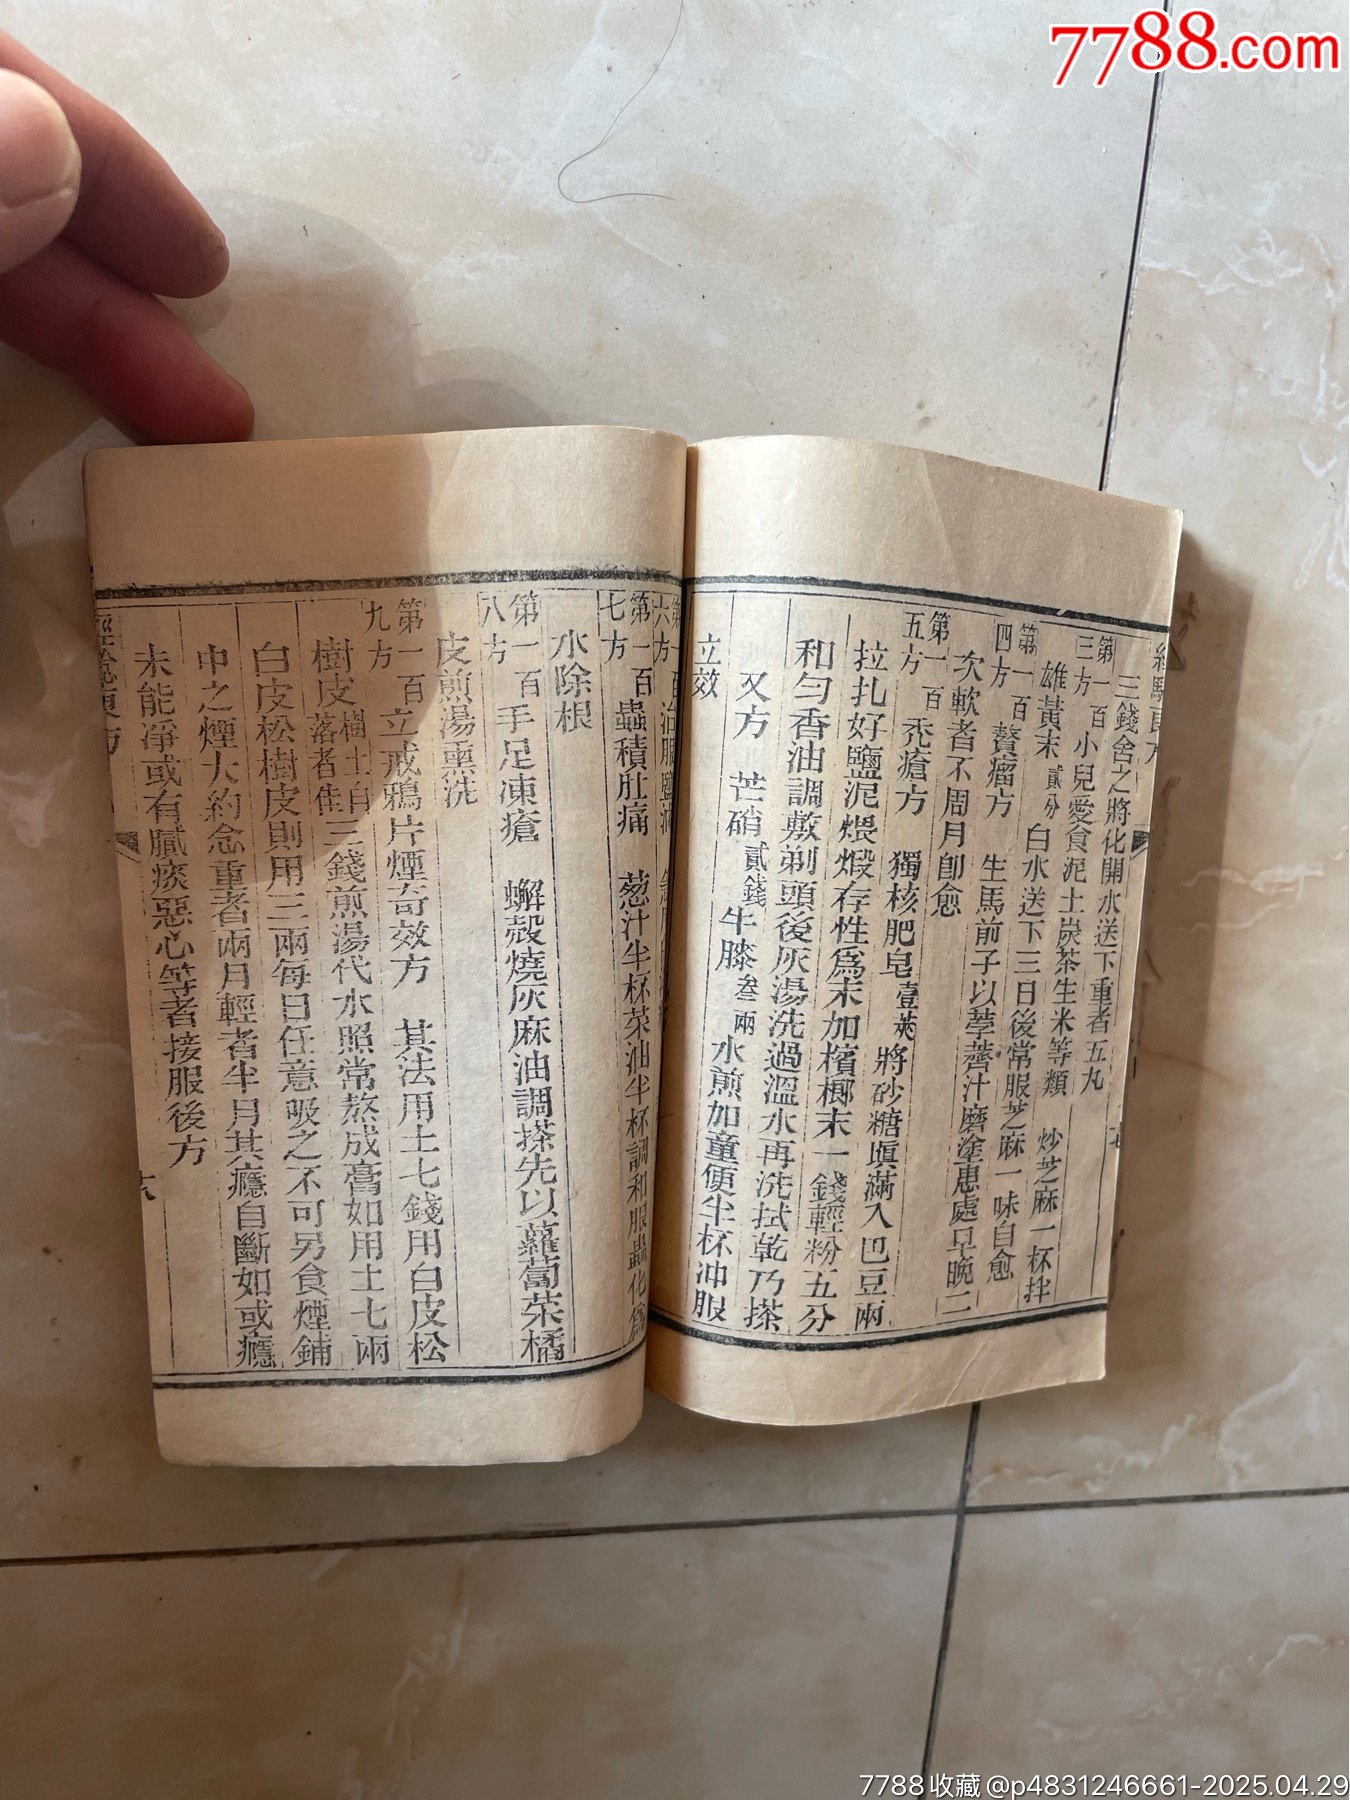 7788.com
三錢舍之將化開水送下重者五丸
第一百三方 小兒愛食泥土炭茶生米等類 炒芝麻一杯拌
雄黃末貳分白水送下三日後常服芝麻一味自愈
第一百四方 贅瘤方 生馬前子以荸薺汁磨塗患處早晚二
次軟者不周月卽愈
第一百五方 禿瘡方 獨核肥皂壹莢將砂糖塡滿入巴豆兩
拉扎好鹽泥煨煅存性爲末加檳榔末一錢輕粉五分
和勻香油調敷剃頭後灰湯洗過溫水再洗拭乾乃搽
又方 芒硝貳錢牛膝叁兩水煎加童便半杯冲服
立效
第一百六方 治
第一百七方 蟲積肚痛 葱汁半杯菜油半杯調和服蟲化爲
水除根
第一百八方 手足凍瘡 蠏殼燒灰麻油調搽先以蘿蔔菜橘
皮煎湯熏洗
第一百九方 立戒鴉片煙奇效方 其法用土七錢用白皮松
樹皮樹上自落者佳三錢煎湯代水照常熬成膏如用土七兩
白皮松樹皮則用三兩每日任意吸之不可另食煙鋪
中之煙大約念重者兩月輕者半月其癮自斷如或癮
未能淨或有膩痰惡心等者接服後方
7788收藏@p4831246661-2025.04.29